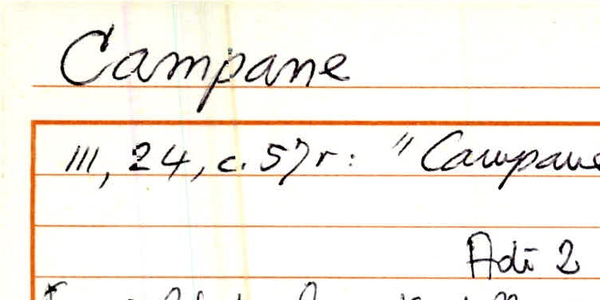 Campane
III, 24, c. 57r: "Campane
Adi 2